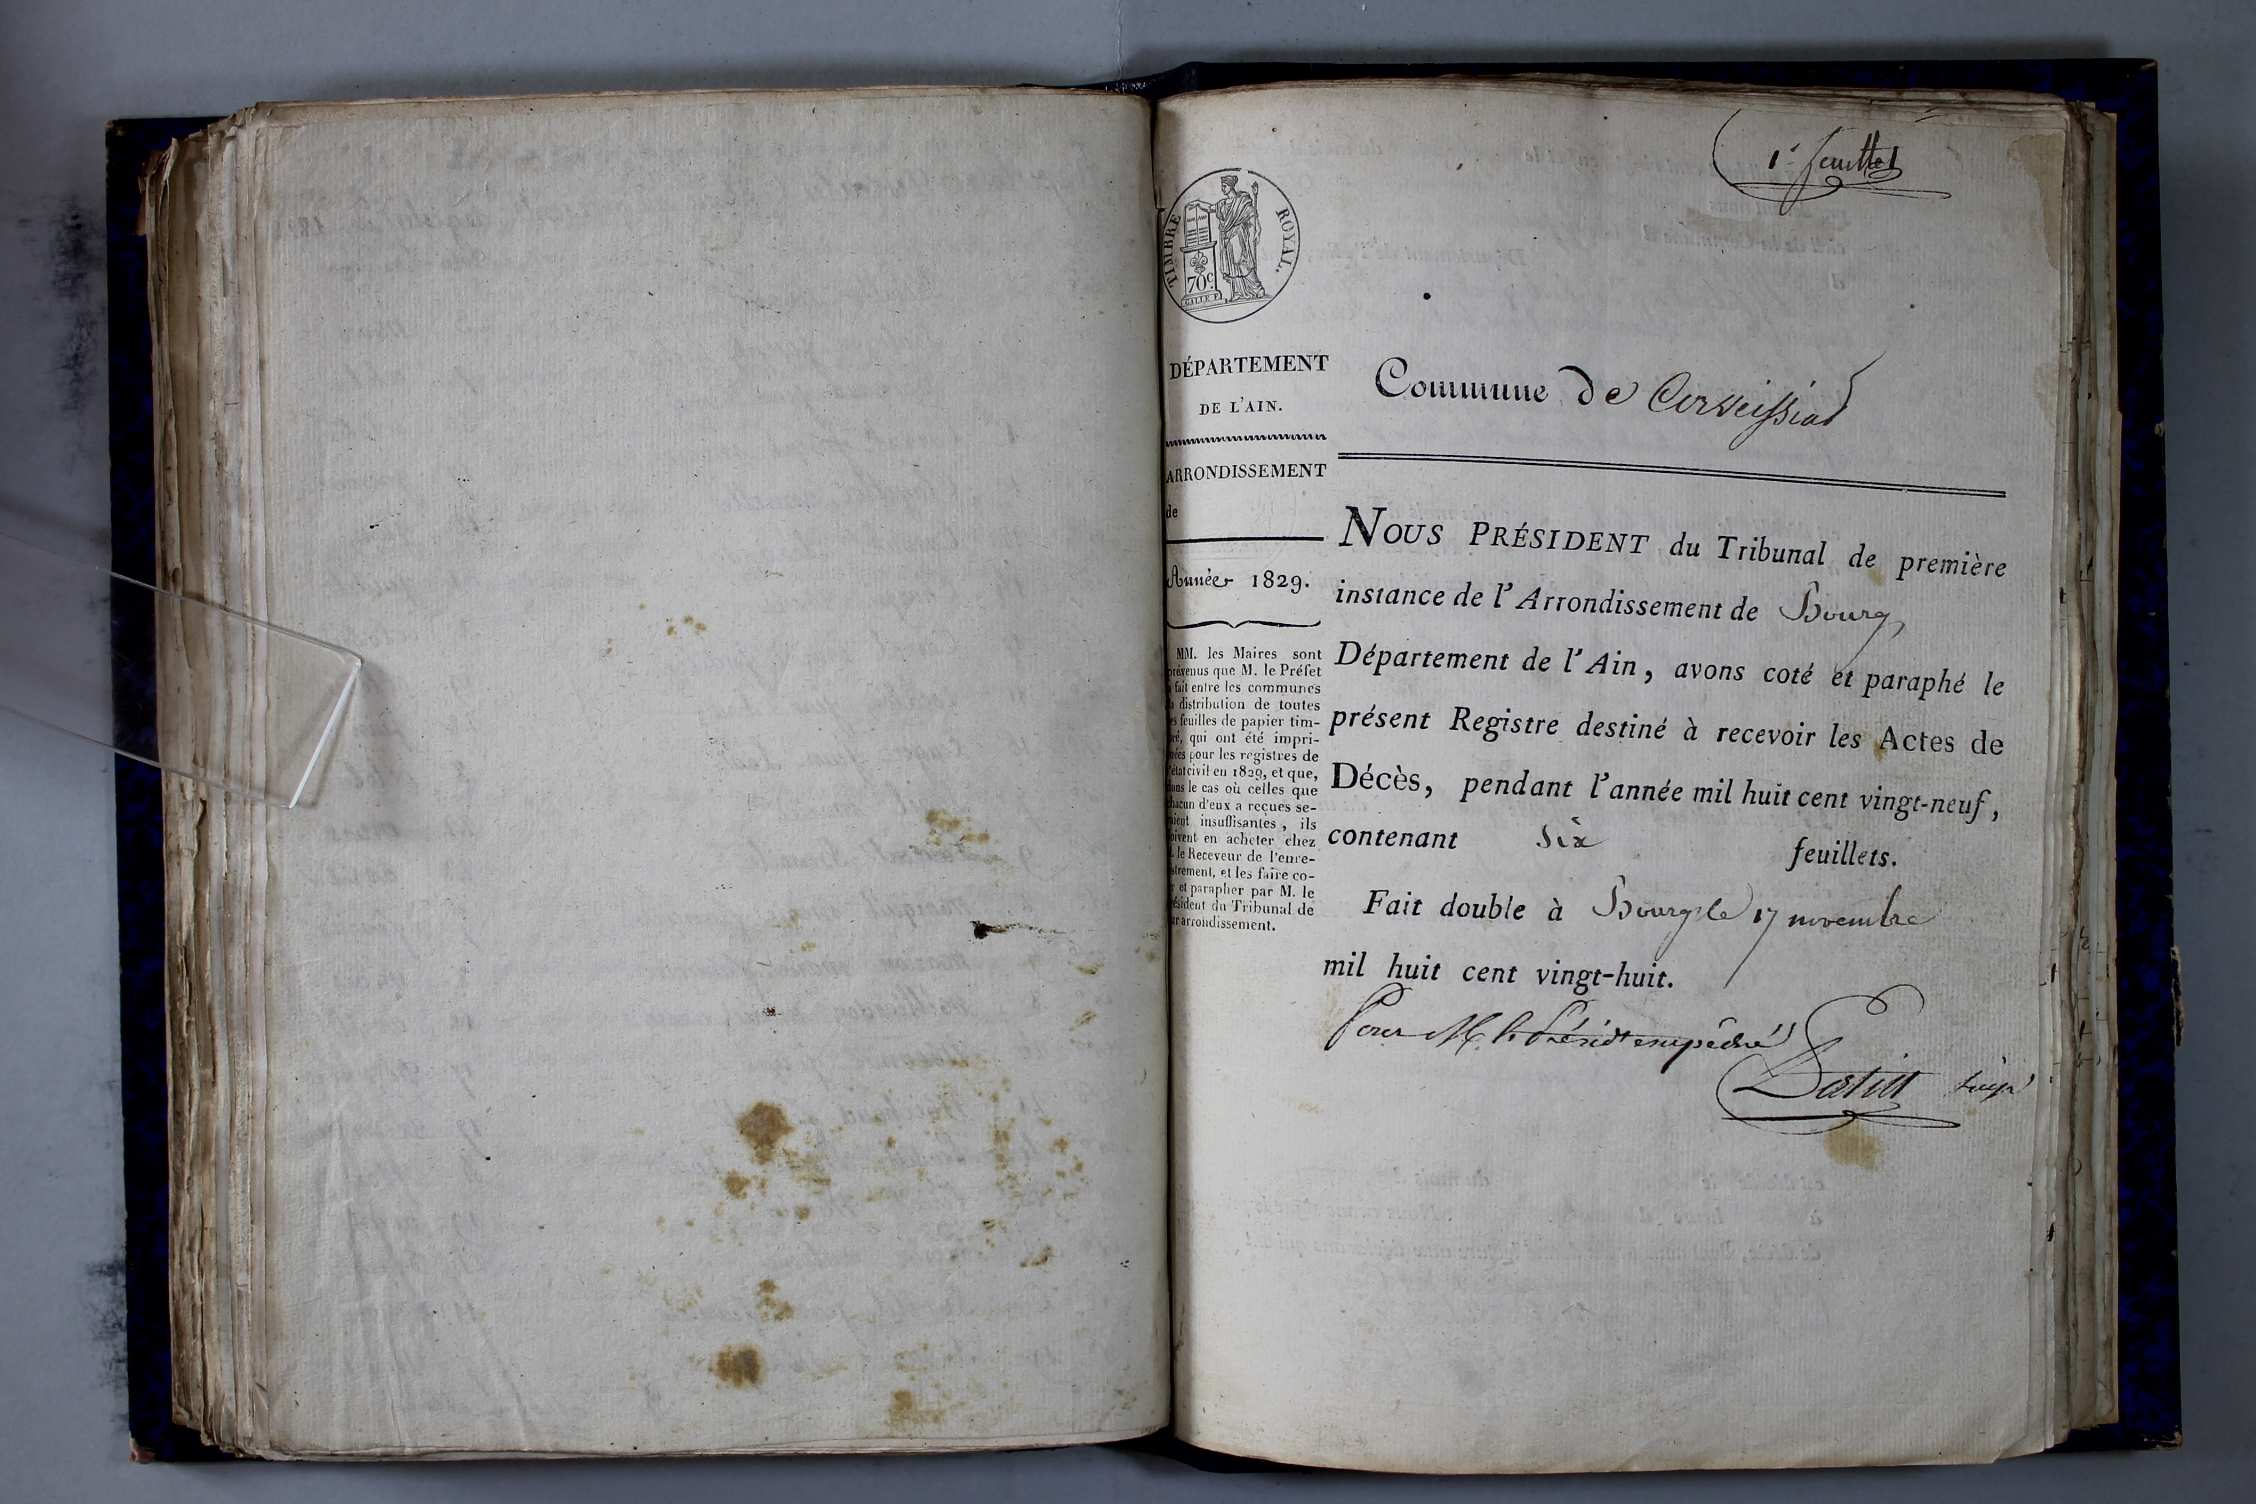 1er feuillet
TIMBRE ROYAL.
70c.
GALLE F.
DÉPARTEMENT
DE L'AIN.
ARRONDISSEMENT
de
Année 1829.
MM. les Maires sont
prévenus que M. le Préfet
a fait entre les communes
la distribution de toutes
les feuilles de papier tim-
bré, qui ont été impri-
mées pour les registres de
l'état civil en 1829, et que,
dans le cas où celles que
chacun d'eux a reçues se-
raient insuffisantes, ils
doivent en acheter chez
M. le Receveur de l'enre-
gistrement, et les faire co-
ter et parapher par M. le
Président du Tribunal de
leur arrondissement.
Commune de
NOUS PRÉSIDENT du Tribunal de première
instance de l'Arrondissement de Bourg
Département de l'Ain, avons coté et paraphé le
présent Registre destiné à recevoir les Actes de
Décès, pendant l'année mil huit cent vingt-neuf,
contenant six feuillets.
Fait double à Bourg le 17 novembre
mil huit cent vingt-huit.
Pour M. le Présidt empêché